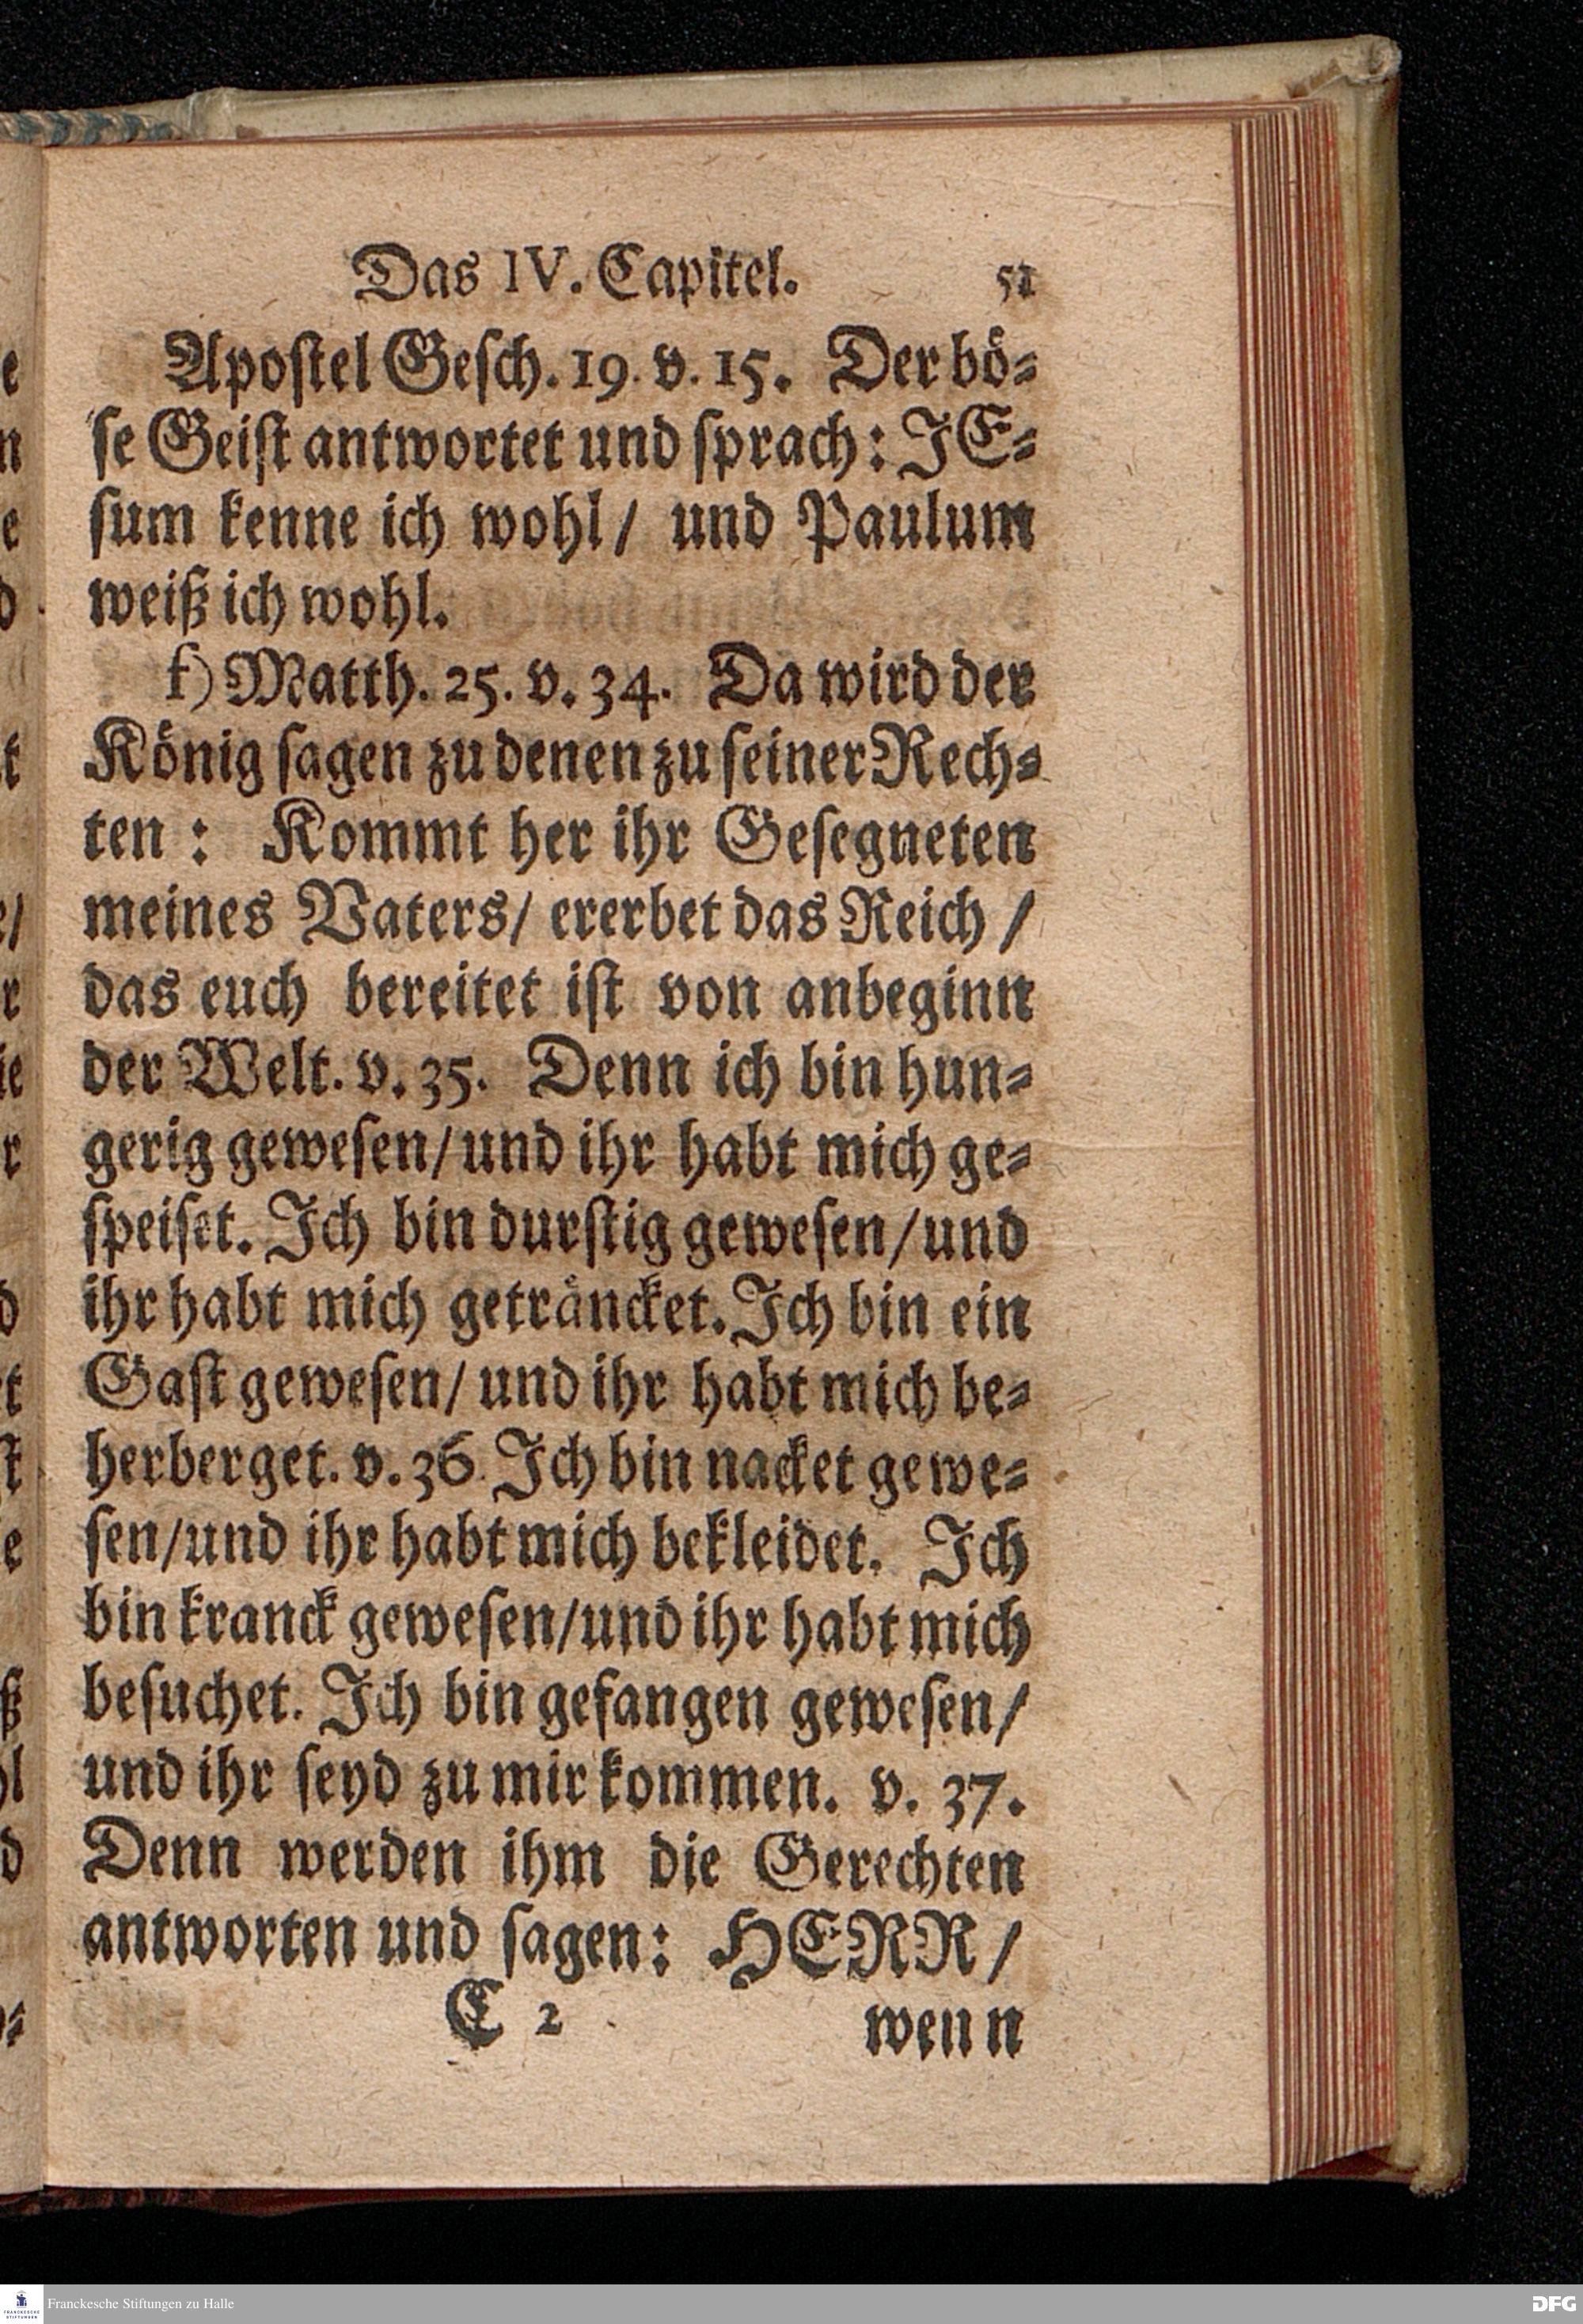 Das IV. Capitel. 51
Apoſtel Geſch. 19. v. 15. Der boͤ⸗
ſe Geiſt antwortet und ſprach: JE⸗
ſum kenne ich wohl/ und Paulum
weiß ich wohl.
f) Matth. 25. v. 34. Da wird der
Koͤnig ſagen zu denen zu ſeiner Rech⸗
ten : Kommt her ihr Geſegneten
meines Vaters/ ererbet das Reich /
das euch bereitet iſt von anbeginn
der Welt. v. 35. Denn ich bin hun⸗
gerig geweſen/ und ihr habt mich ge⸗
ſpeiſet. Ich bin durſtig geweſen/ und
ihr habt mich getraͤncket. Ich bin ein
Gaſt geweſen/ und ihr habt mich be⸗
herberget. v. 36. Ich bin nacket gewe⸗
ſen/ und ihr habt mich bekleidet. Ich
bin kranck geweſen/ und ihr habt mich
beſuchet. Ich bin gefangen geweſen/
und ihr ſeyd zu mir kommen. v. 37.
Denn werden ihm die Gerechten
antworten und ſagen: HERR /
C 2 wenn
Franckesche Stiftungen zu Halle
DFG